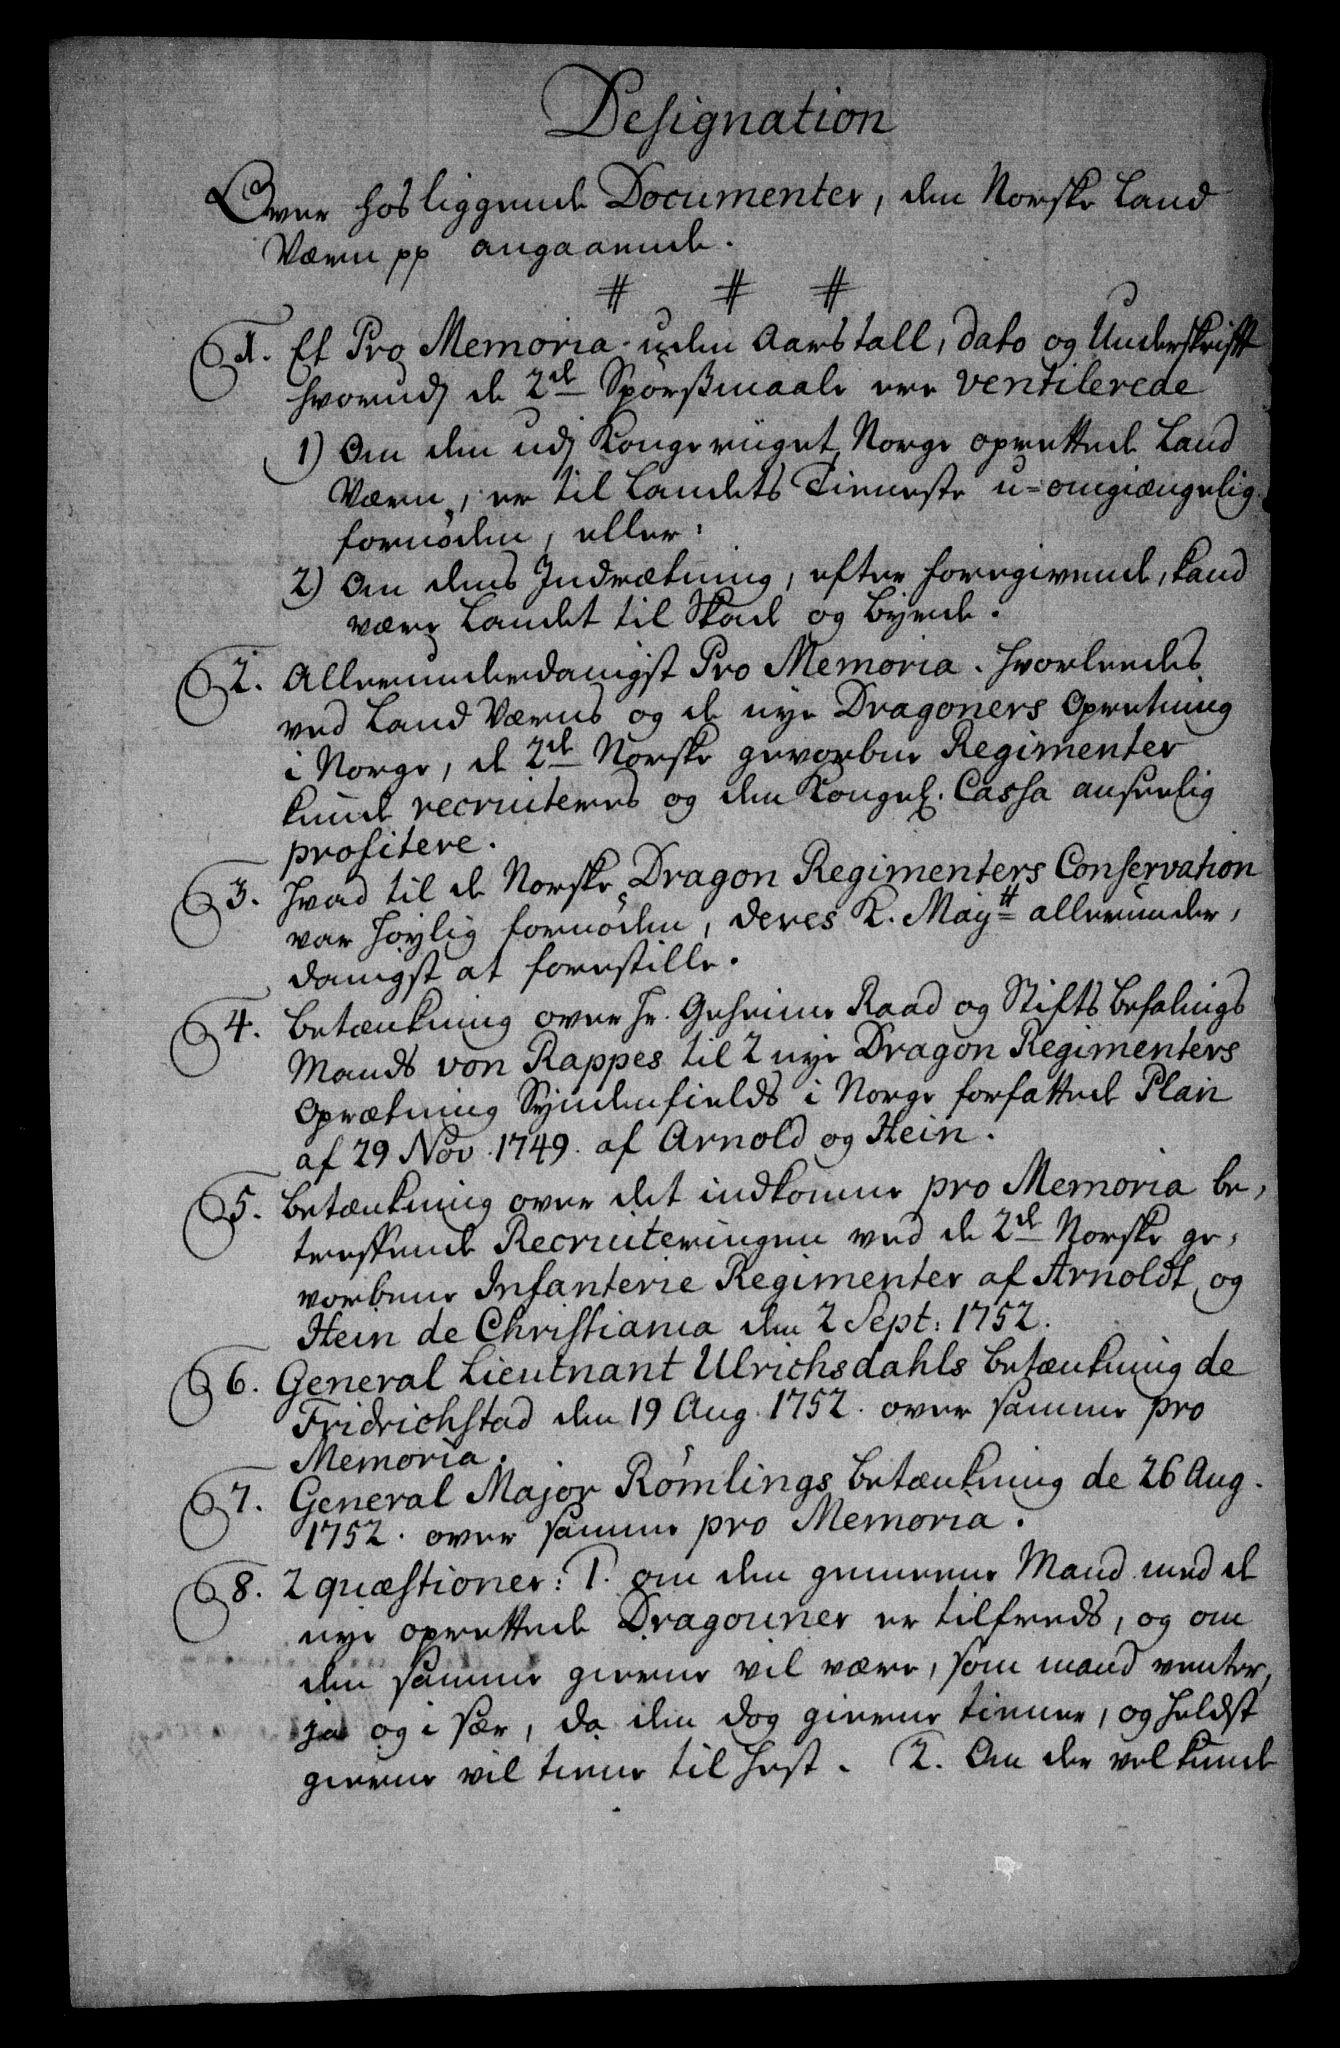 Designation
Over hosliggende Documenter, den Norske Land
Værn pp angaaende.
# # #
1. Et Pro Memoria uden Aarstall, dato og Underskrift
hvorudj de 2de Spørßmaale ere ventilerede
1) Om den udj Kongeriiget Norge oprettede Land
Værn, er til Landets Tieneste u-omgiængelig
fornøden, eller:
2) Om dens Indrætning, efter foregivende, kand
være Landet til Skade og Byrde.
2. Allerunderdanigst Pro Memoria. hvorledes
ved Land Værns og de nye Dragoners Opretning
i Norge, de 2de Norske gevorbne Regimenter
kunde recruiteres og den Kongel. Cassa anseelig
profitere.
3. Hvad til de Norske Dragon Regimenters Conservation
var høylig fornøden, Deres K. Mayt allerunder,
danigst at forestille.
4. Betænkning over Hr. Geheime Raad og Stifts Befalings
Mands von Rappes til 2 nye Dragon Regimenters
Oprætning Syndenfields i Norge forfattede Plan
af 29 Nov. 1749. af Arnold og Hein.
5. Betænkning over det indkomne pro Memoria be,
treffende Recruiteringen ved de 2de Norske ge,
vorbene Infanterie Regimenter af Arnoldt og
Hein de Christiania den 2 Sept: 1752.
6. General Lieutnant Ulrichsdahls Betænkning de
Fridrichstad den 19 Aug. 1752. over samme pro
Memoria.
7. General Major Rømlings Betænkning de 26 Aug.
1752. over samme pro Memoria.
8. 2 quæstioner: 1. om den gemeene Mand med de
nye oprettede Dragouner er tilfreds, og om
den samme gierne vil være, som mand venter,
ja og i sær, da den dog gierne tiener, og heldst
gierne vil tiene til Hest. 2. Om der vel kunde